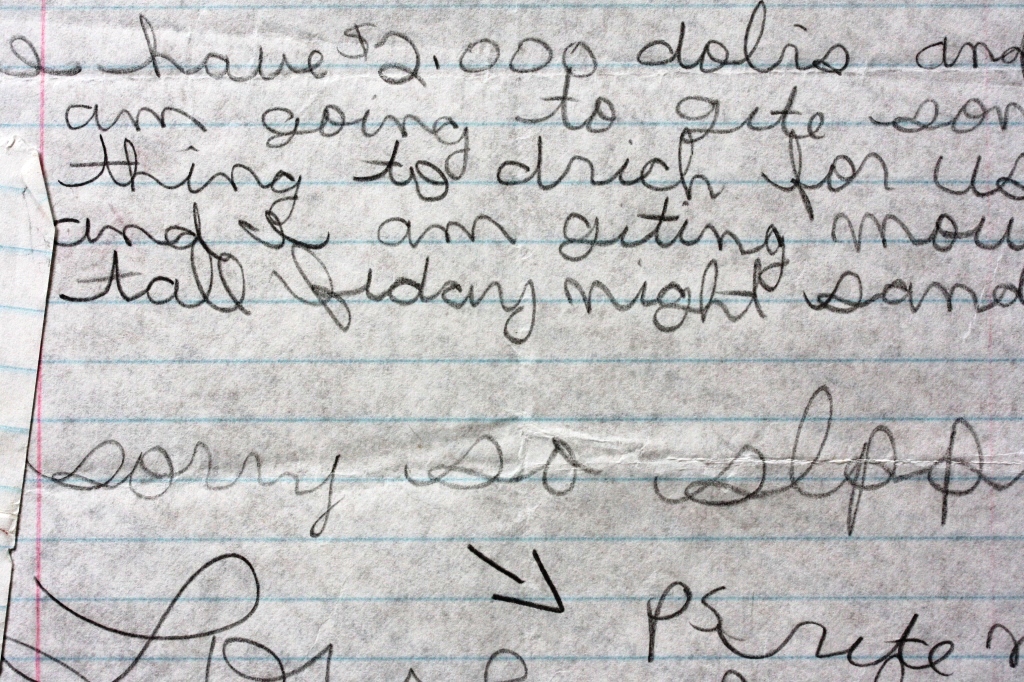 I have $2.000 dolis and
am going to gite som
thing to drich for us
and I am giting mou
tall fiday night sand
sorry so slpp
PS rite